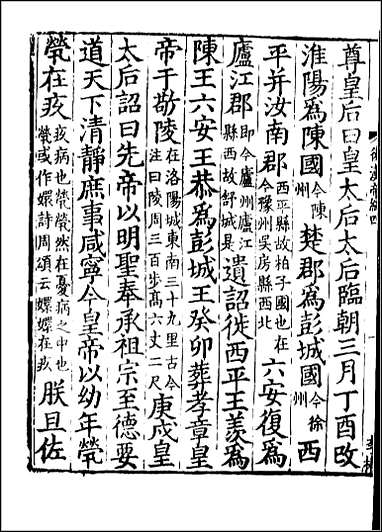 尊皇后曰皇太后太后臨朝三月丁酉改
淮陽爲陳國今陳州楚郡爲彭城國今徐州西
平并汝南郡西平縣故柏子國也在今豫州吳房縣西北六安復爲
廬江郡即今廬州廬江縣西故舒城是遺詔徙西平王羨爲
陳王六安王恭爲彭城王癸卯葬孝章皇
帝于敬陵在洛陽城東南三十九里古今注曰陵周三百步高六丈二尺庚戌皇
太后詔曰先帝以明聖奉承祖宗至德要
道天下清靜庶事咸寧今皇帝以幼年煢
煢在疚疚病也煢煢然在憂病之中也煢或作嬛詩周頌云嬛嬛在疚朕且佐